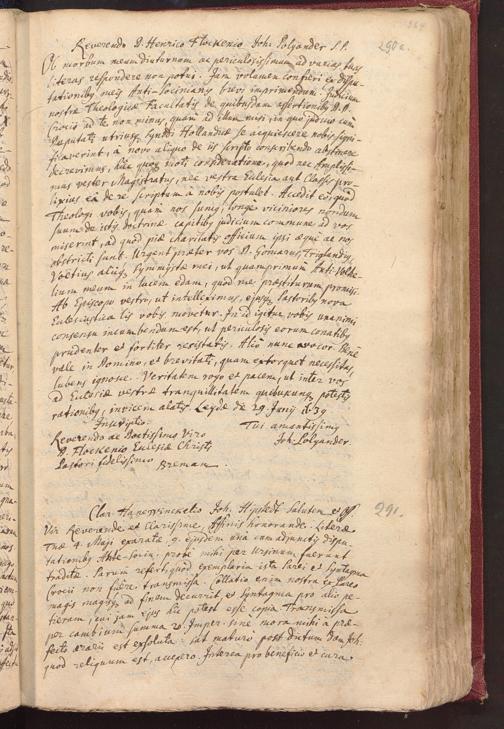 Reverendo D. Henrico Flockenio Joh. Polyander S. P.
290a.
Ob morbum meum diuturnum ac periculosissimum ad varias tuas
literas respondere non potui. Jam volumen confieri ex dispu-
tationibus meis Anti-Socinianis brevi imprimendum. Judicium
nostrae Theologicae Facultatis de quibusdam assertionibus D. D.
Crocii ad te non minus, quam ad illum misi, in quo judicio cum
Deputati utriusque Synodi Hollandiae se acquiescere nobis signi-
ficaverint, a novo aliquo de iis scripto conscribendo abstinere
decrevimus, hac quoque moti consideratione, quod nec Amplissi-
mus vester Magistratus, nec vestra Ecclesia aut Classis pro-
lixius ea de re scriptum a nobis postulet. Accedit eo, quod
Theologi vobis, quam nos sumus, longe viciniores nondum
suum de istis doctrinae capitibus judicium commune ad vos
miserint, ad quod piae charitatis officium ipsi aeque ac nos
obstricti sunt. Urgent praeter vos D. Gomarus, Triglandius,
Voetius aliique Symmistae mei, ut quamprimum Anti-Volke-
lium meum in lucem edam, quod me praestiturum promisi.
Ab Episcopo vestro, ut intelleximus, ejusque Pastoribus nova
Ecclesiastica lis vobis movetur. In id igitur vobis unanimi
consensu incumbendum est, ut periculosis eorum conatibus
prudenter et fortiter resistatis. Alio nunc avocor. Bene
vale in Domino, et brevitati, quam extorquet necessitas,
lubens ignosce. Veritatem rogo et pacem, ut inter vos
ad Ecclesiae vestrae tranquillitatem quibuscunque potestis
rationibus, invicem alatis. Leyde de 29 Junij 39
Inscriptio. Tui amantissimus
Reverendo ac Doctissimo Viro Joh. Polyander.
D. Flockenio Ecclesiae Christi
Pastori fidelissimo
Bremam.
291.
Clar. Joh. Salutem et
Vir Reverende et Clarissime, Affinis honorande. Literae
Tuae 4 Maji exaratae, 9 ejusdem una cum adjunctis dispu-
tationibus Anti-Socin. probe mihi per Ursinum fuerunt
traditae. Parum refert, quod exemplaria ista Parei et Syntagma
Crocii non fuere transmissa. Collatio enim nostra ex Pareo
magis magisque ad finem decurrit, et Syntagma pro alio pe-
tieram, cui jam ejus hic potest esse copia. Transmissa
per cambium summa 20 Imper. sine mora mihi a prae-
fecto aerarii est exsoluta: sat maturo post dictum
quod reliquum est, accepero. Interea pro beneficio et cura